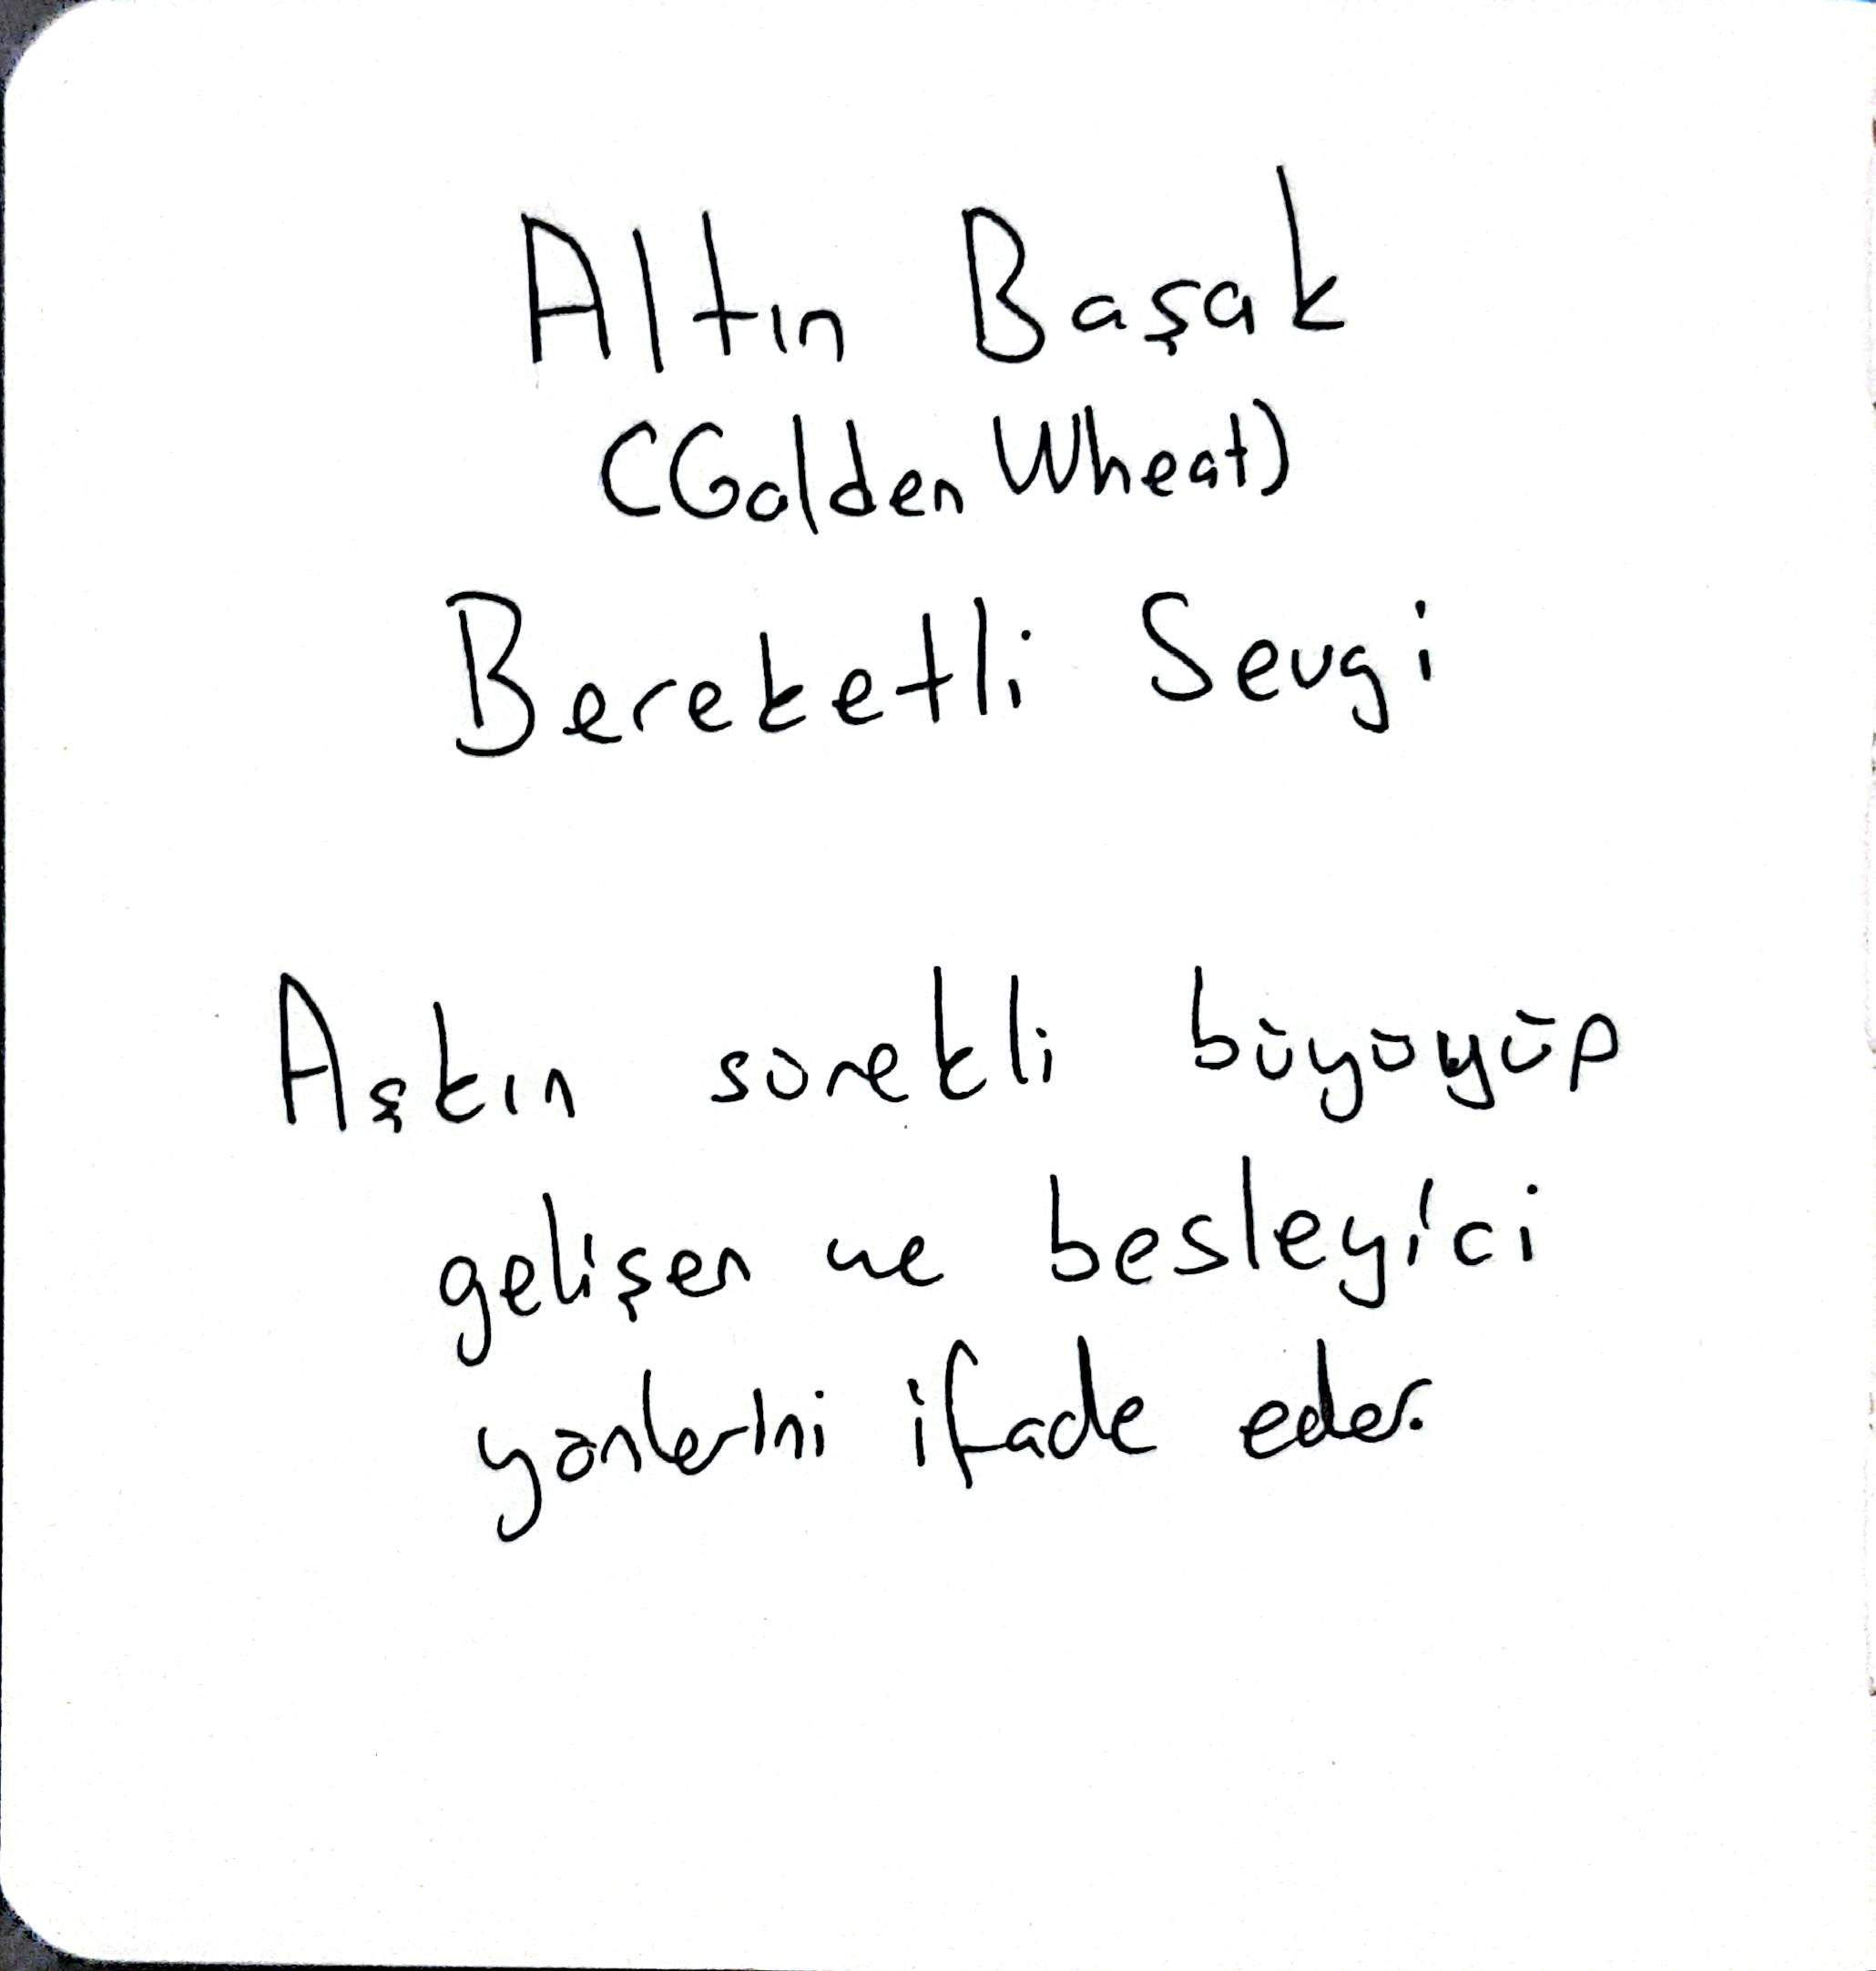 Altın Başak
(Golden Wheat)
Bereketli Sevgi
Aşkın sürekli büyüyüp
gelişen ve besleyici
yönlerini ifade eder.